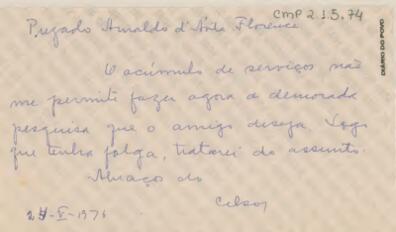 CMP 2.1.5.74
Prezado Arnaldo d'Ávila Florence
DIÁRIO DO POVO
O acúmulo de serviços não
me permite fazer agora a demorada
pesquisa que o amigo deseja. Logo
que tenha folga, tratarei do assunto.
Abraços do
Celso
-V-1976